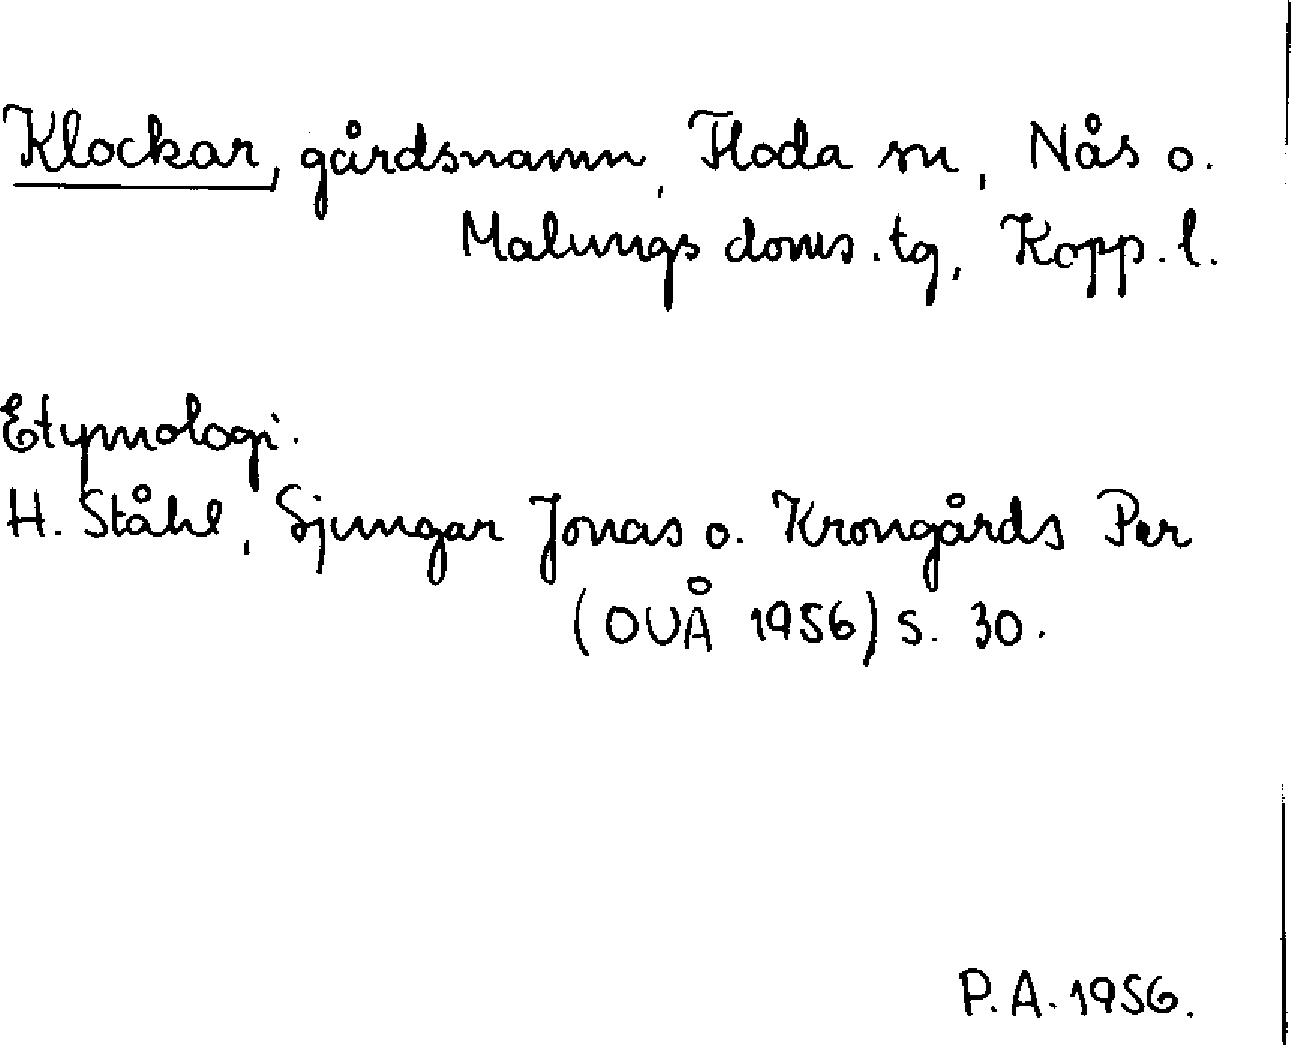 Klockar, gårdsnamn, Floda sn, Nås o.
Malungs doms.tg, Kopp.l.
Etymologi.
H. Ståhl, Sjungar Jonas o. Krongårds Per
(OUÅ 1956) s. 30.
P.A. 1956.